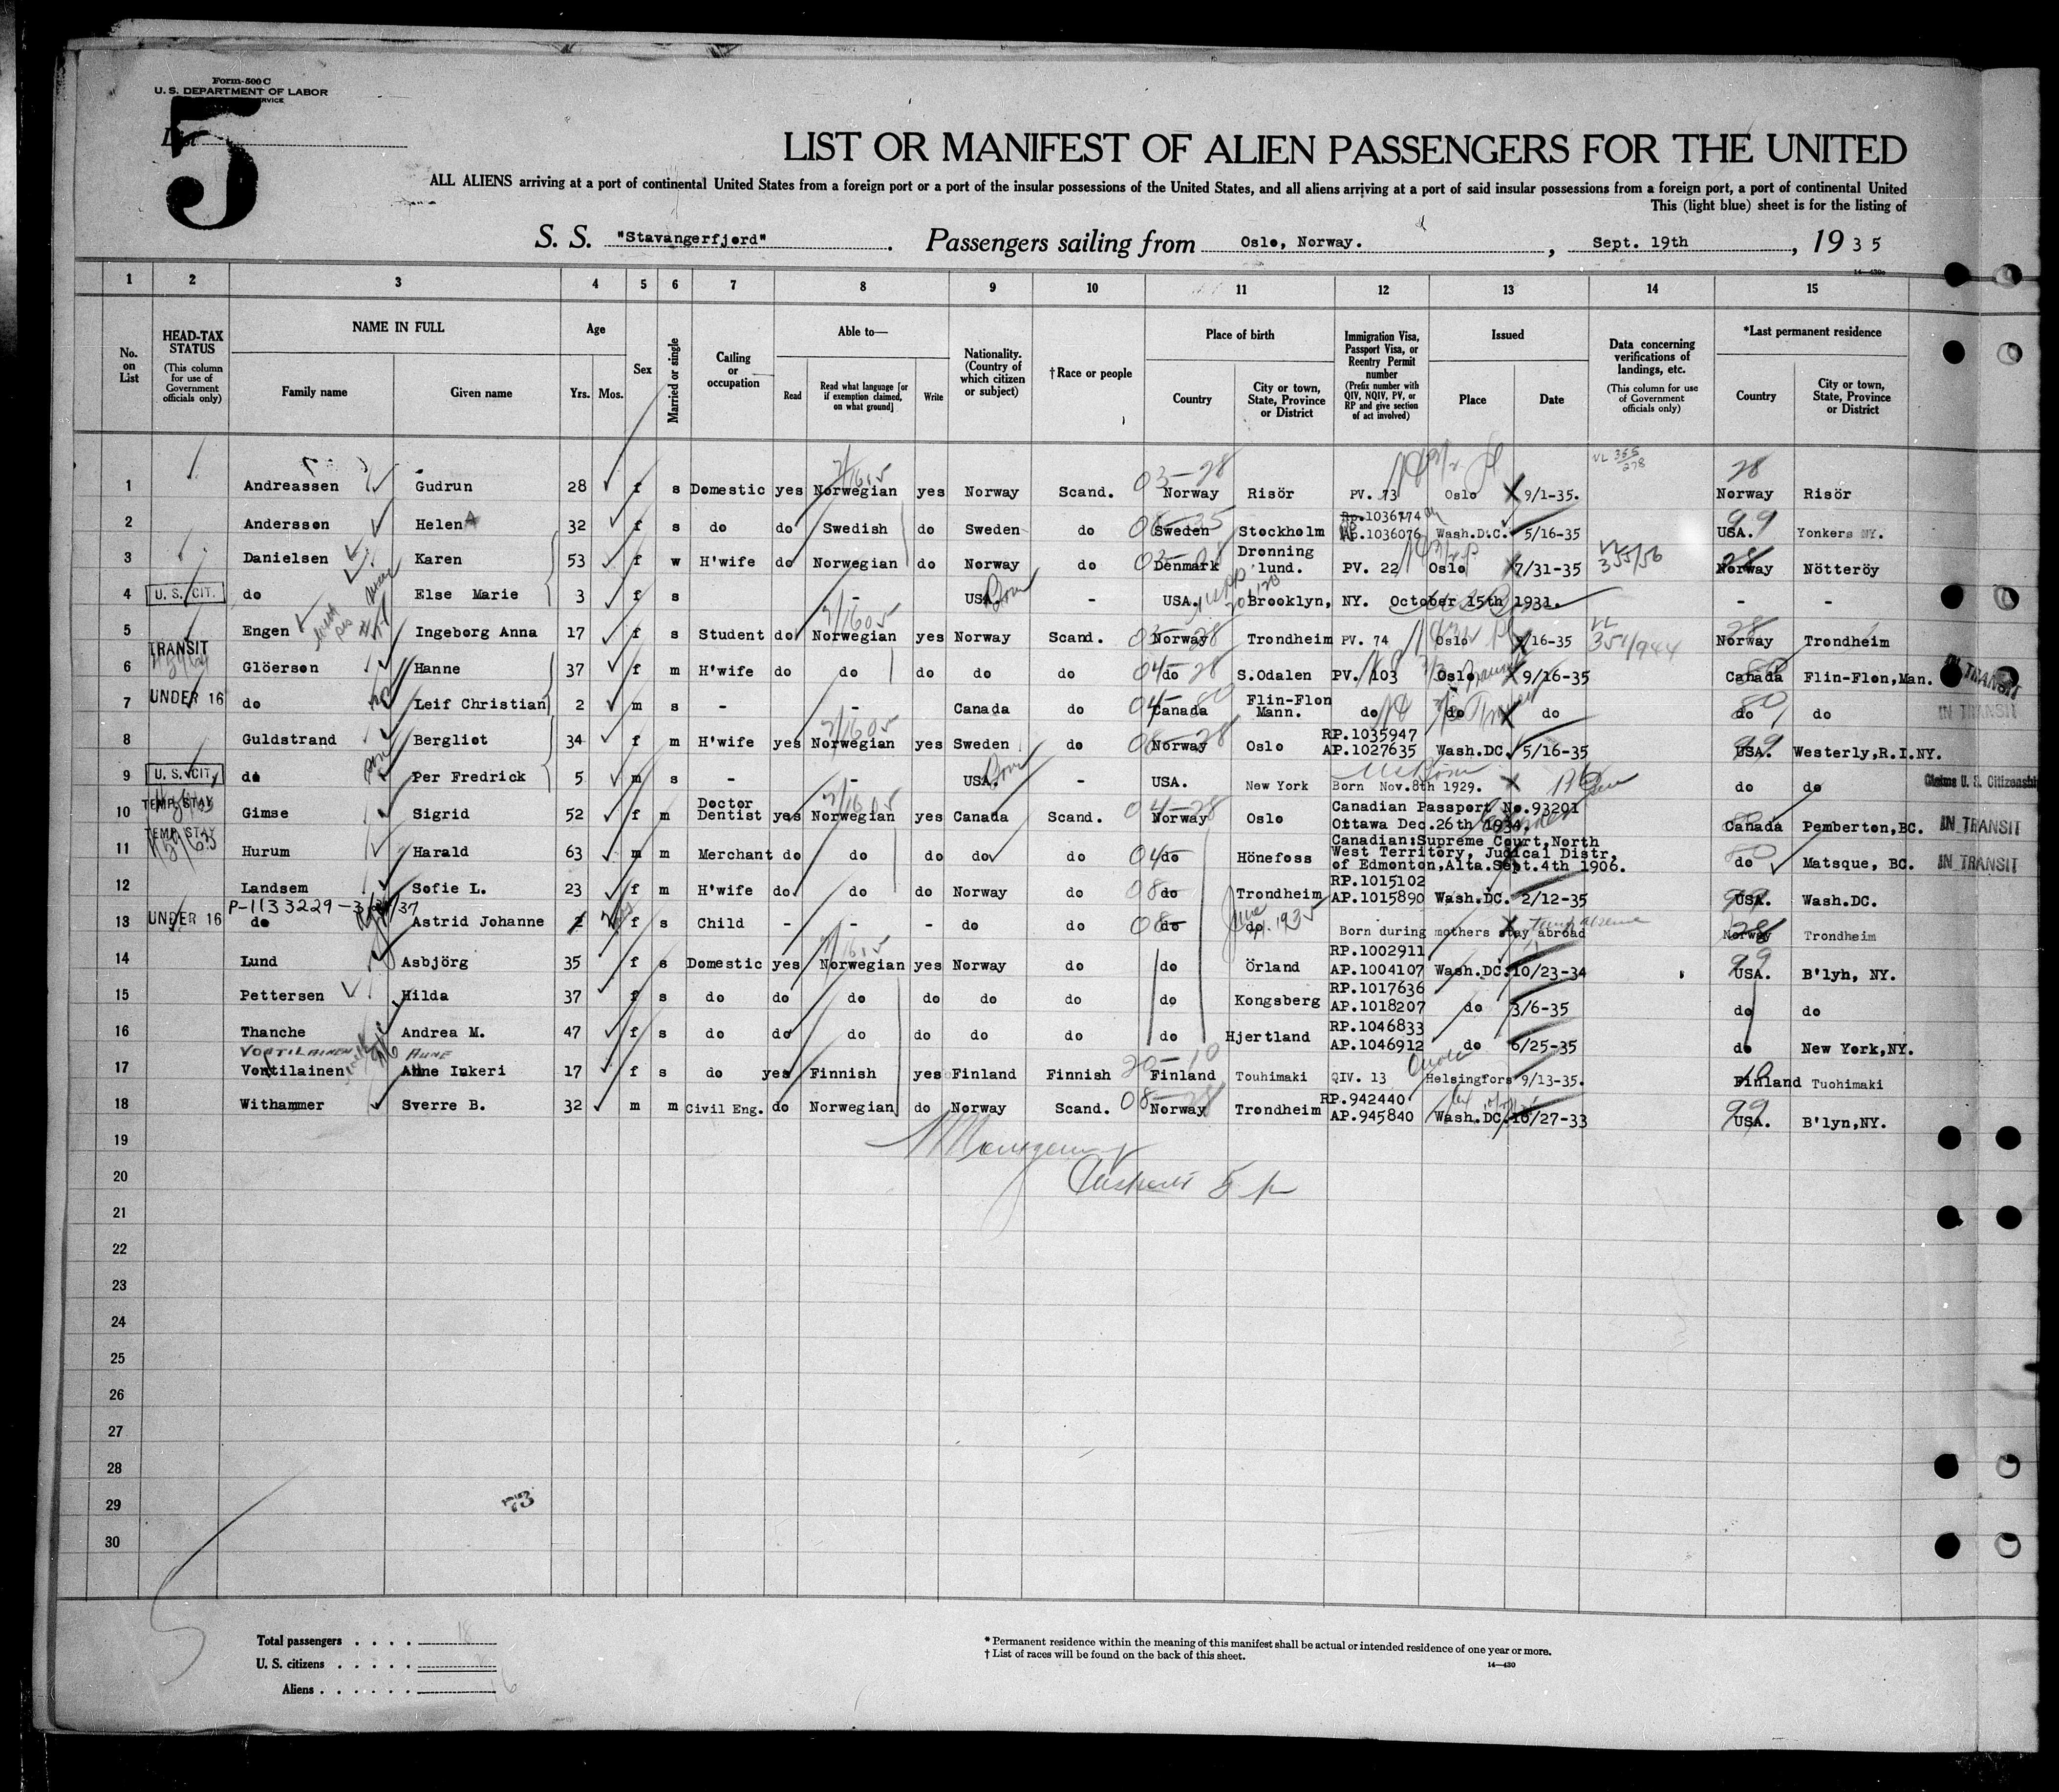 Form-500 C
U. S. DEPARTMENT OF LABOR
5
List
LIST OR MANIFEST OF ALIEN PASSENGERS FOR THE UNITED
ALL ALIENS arriving at a port of continental United States from a foreign port or a port of the insular possessions of the United States, and all aliens arriving at a port of said insular possessions from a foreign port, a port of continental United
This (light blue) sheet is for the listing of
S. S. "Stavangerfjord". Passengers sailing from Oslo, Norway. , Sept. 19th , 1935
1 2 3 4 5 6 7 8 9 10 11 12 13 14 15
No. on List
HEAD-TAX STATUS (This column for use of Government officials only)
NAME IN FULL
Family name Given name
Age
Yrs. Mos.
Sex
Married or single
Calling or occupation
Able to—
Read Read what language [or if exemption claimed, on what ground] Write
Nationality. (Country of which citizen or subject)
†Race or people
Place of birth
Country City or town, State, Province or District
Immigration Visa, Passport Visa, or Reentry Permit number (Prefix number with QIV, NQIV, PV, or RP and give section of act involved)
Issued
Place Date
Data concerning verifications of landings, etc. (This column for use of Government officials only)
*Last permanent residence
Country City or town, State, Province or District
1 Andreassen Gudrun 28 f s Domestic yes Norwegian yes Norway Scand. 03-28 Norway Risör PV. 73 Oslo 9/1-35. VL 355/278 28 Norway Risör
2 Andersson Helen A 32 f s do do Swedish do Sweden do Sweden Stockholm Rp.1036774 Ap.1036076 Wash.D.C. 5/16-35 99 USA. Yonkers NY.
3 Danielsen Karen 53 f w H'wife do Norwegian do Norway do Denmark Drønning lund. PV. 22 Oslo 7/31-35 VL 355/56 28 Norway Nötteröy
4 U. S. CIT. do Else Marie 3 f s - USA. Born - USA. Brooklyn, NY. October 15th 1931. - -
5 Engen Ingeborg Anna 17 f s Student do Norwegian yes Norway Scand. 03-28 Norway Trondheim PV. 74 Oslo /16-35 VL 351/944 28 Norway Trondheim
6 TRANSIT Glöersen Hanne 37 f m H'wife do do do do do 04-28 do S.Odalen PV. 103 Oslo 9/16-35 80 Canada Flin-Flon,Man. IN TRANSIT
7 UNDER 16 do Leif Christian 2 m s - - Canada do 04-80 Canada Flin-Flon Mann. do do do 80 do do IN TRANSIT
8 Guldstrand Bergliot 34 f m H'wife yes Norwegian yes Sweden do 08-28 Norway Oslo RP.1035947 AP.1027635 Wash.DC. 5/16-35 99 USA. Westerly,R.I.NY.
9 U. S. CIT. do Per Fredrick 5 m s - - USA. Born - USA. New York Born Nov.8th 1929. do do Claims U. S. Citizenship
10 TEMP. STAY Gimse Sigrid 52 f m Doctor Dentist yes Norwegian yes Canada Scand. 04-28 Norway Oslo Canadian Passport No.93201 Ottawa Dec.26th 1934. Canada Pemberton,BC. IN TRANSIT
11 TEMP. STAY Hurum Harald 63 m m Merchant do do do do do 04 do Hönefoss Canadian:Supreme Court,North West Territory, Judical Distr. of Edmonton,Alta.Sept.4th 1906. 80 do Matsque, BC. IN TRANSIT
12 Landsem Sofie L. 23 f m H'wife do do do Norway do 08 do Trondheim RP.1015102 AP.1015890 Wash.DC. 2/12-35 99 USA. Wash.DC.
13 UNDER 16 do Astrid Johanne 2 f s Child - - - do do 08 do do. June 1935 Born during mothers stay abroad 28 Norway Trondheim
14 Lund Asbjörg 35 f s Domestic yes Norwegian yes Norway do do Örland RP.1002911 AP.1004107 Wash.DC. 10/23-34 99 USA. B'lyh, NY.
15 Pettersen Hilda 37 f s do do do do do do do Kongsberg RP.1017636 AP.1018207 do 3/6-35 do do
16 Thanche Andrea M. 47 f s do do do do do do do Hjertland RP.1046833 AP.1046912 do 6/25-35 do New York,NY.
VOUTILAINEN AUNE
17 Ventilainen Anne Inkeri 17 f s do yes Finnish yes Finland Finnish 20-10 Finland Touhimaki QIV. 13 Quota Helsingfors 9/13-35. Finland Tuohimaki
18 Withammer Sverre B. 32 m m Civil Eng. do Norwegian do Norway Scand. 08-28 Norway Trondheim RP.942440 AP.945840 Wash.DC. 10/27-33 99 USA. B'lyn,NY.
19
20
21
22
23
24
25
26
27
28
29
30
73
Total passengers . . . . 18
U. S. citizens . . . . .
Aliens . . . . . . 16
* Permanent residence within the meaning of this manifest shall be actual or intended residence of one year or more.
† List of races will be found on the back of this sheet.
14—430